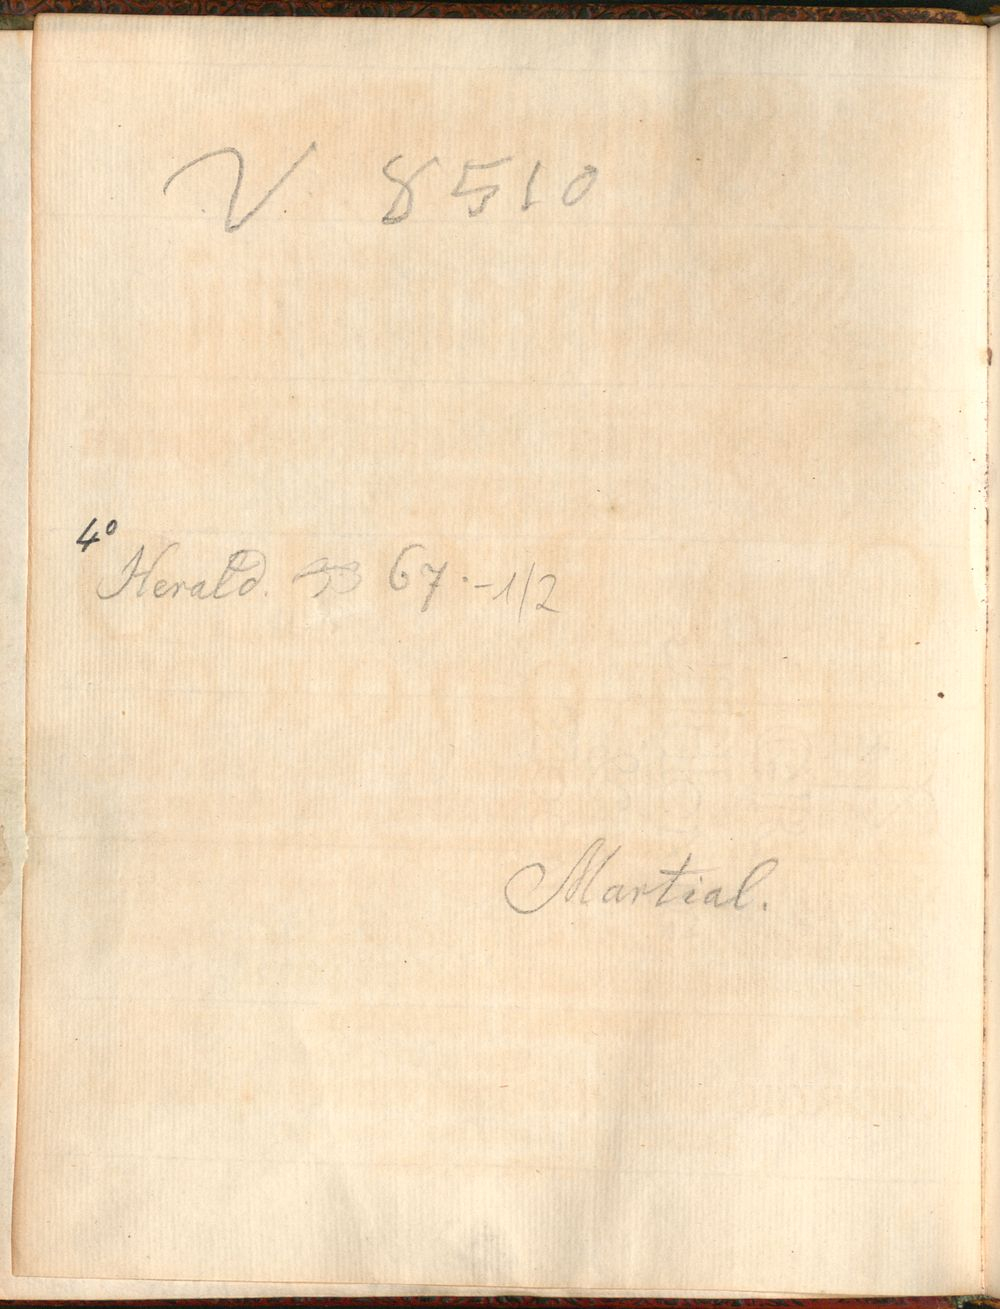 V 8510
4º
Herald. 67.-1/2
Martial.